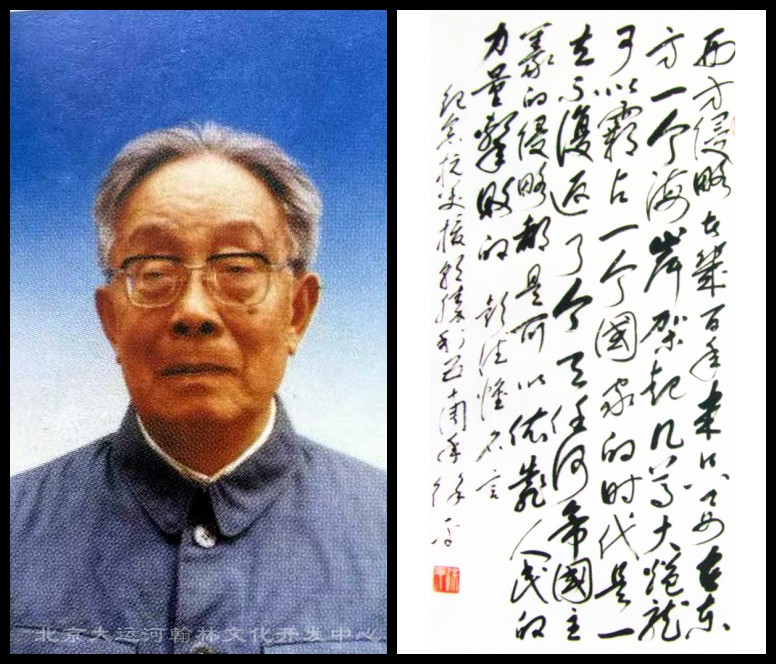 西方侵略者幾百年来只要在东
方一个海岸架起几尊大炮就
可以霸占一个國家的时代是一
去不復返了今天任何帝國主
義的侵略都是可以依靠人民的
力量擊敗的 彭德懷名言
纪念抗美援朝勝利
北京大运河翰林文化开发中心